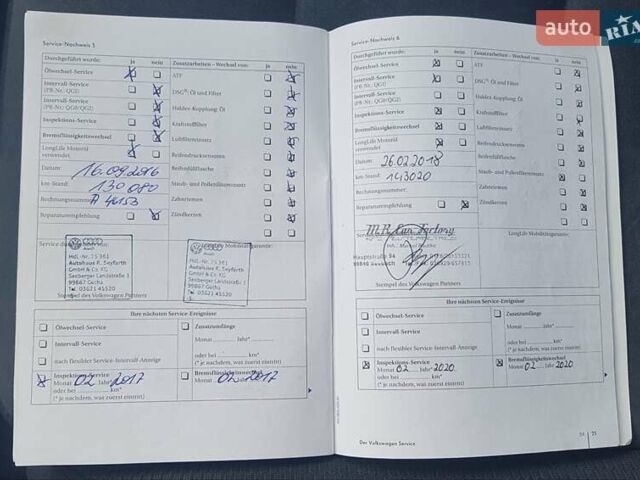 auto RIA
Service-Nachweis 5
Durchgeführt wurde: ja nein
Ölwechsel-Service
Intervall-Service
(PR-Nr.: QG1)
Intervall-Service
(PR-Nr.: QG0/QG2)
Inspektions-Service
Bremsflüssigkeitswechsel
LongLife Motoröl
verwendet
Datum: 16.09.2016
km-Stand: 130 080
Rechnungsnummer:
Reparaturempfehlung
Zusatzarbeiten - Wechsel von: ja nein
ATF
DSG®: Öl und Filter
Haldex-Kupplung: Öl
Kraftstofffilter
Luftfiltereinsatz
Reifendruckssensoren
Reifenfüllflasche
Staub- und Pollenfiltereinsatz
Zahnriemen
Zündkerzen
Hdl.-Nr. 75 361
Autohaus R. Seyfarth
GmbH & Co. KG
Seeberger Landstraße 1
99867 Gotha
Tel. 03621 45520
Stempel des Volkswagen Partners
Ihre nächsten Service-Ereignisse
Ölwechsel-Service
Intervall-Service
nach flexibler Service-Intervall-Anzeige
Inspektions-Service
Monat 02 Jahr* 2017
oder bei km*
(* je nachdem, was zuerst eintritt)
Zusatzumfänge
Monat Jahr*
oder bei km*
(* je nachdem, was zuerst eintritt)
Bremsflüssigkeitswechsel
Monat 02 2017
Service-Nachweis 6
Durchgeführt wurde: ja nein
Ölwechsel-Service
Intervall-Service
(PR-Nr.: QG1)
Intervall-Service
(PR-Nr.: QG0/QG2)
Inspektions-Service
Bremsflüssigkeitswechsel
LongLife Motoröl
verwendet
Datum: 26.02.2018
km-Stand: 143020
Rechnungsnummer:
Reparaturempfehlung
Zusatzarbeiten - Wechsel von: ja nein
ATF
DSG®: Öl und Filter
Haldex-Kupplung: Öl
Kraftstofffilter
Luftfiltereinsatz
Reifendruckssensoren
Reifenfüllflasche
Staub- und Pollenfiltereinsatz
Zahnriemen
Zündkerzen
LongLife Mobilitätsgarantie:
M.R. Car Factory
Hauptstraße 94
Stempel des Volkswagen Partners
Ihre nächsten Service-Ereignisse
Ölwechsel-Service
Intervall-Service
nach flexibler Service-Intervall-Anzeige
Inspektions-Service
Monat 02 Jahr* 2020
oder bei km*
(* je nachdem, was zuerst eintritt)
Zusatzumfänge
Monat Jahr*
oder bei km*
(* je nachdem, was zuerst eintritt)
Bremsflüssigkeitswechsel
Monat 02 Jahr 2020
Der Volkswagen Service
25